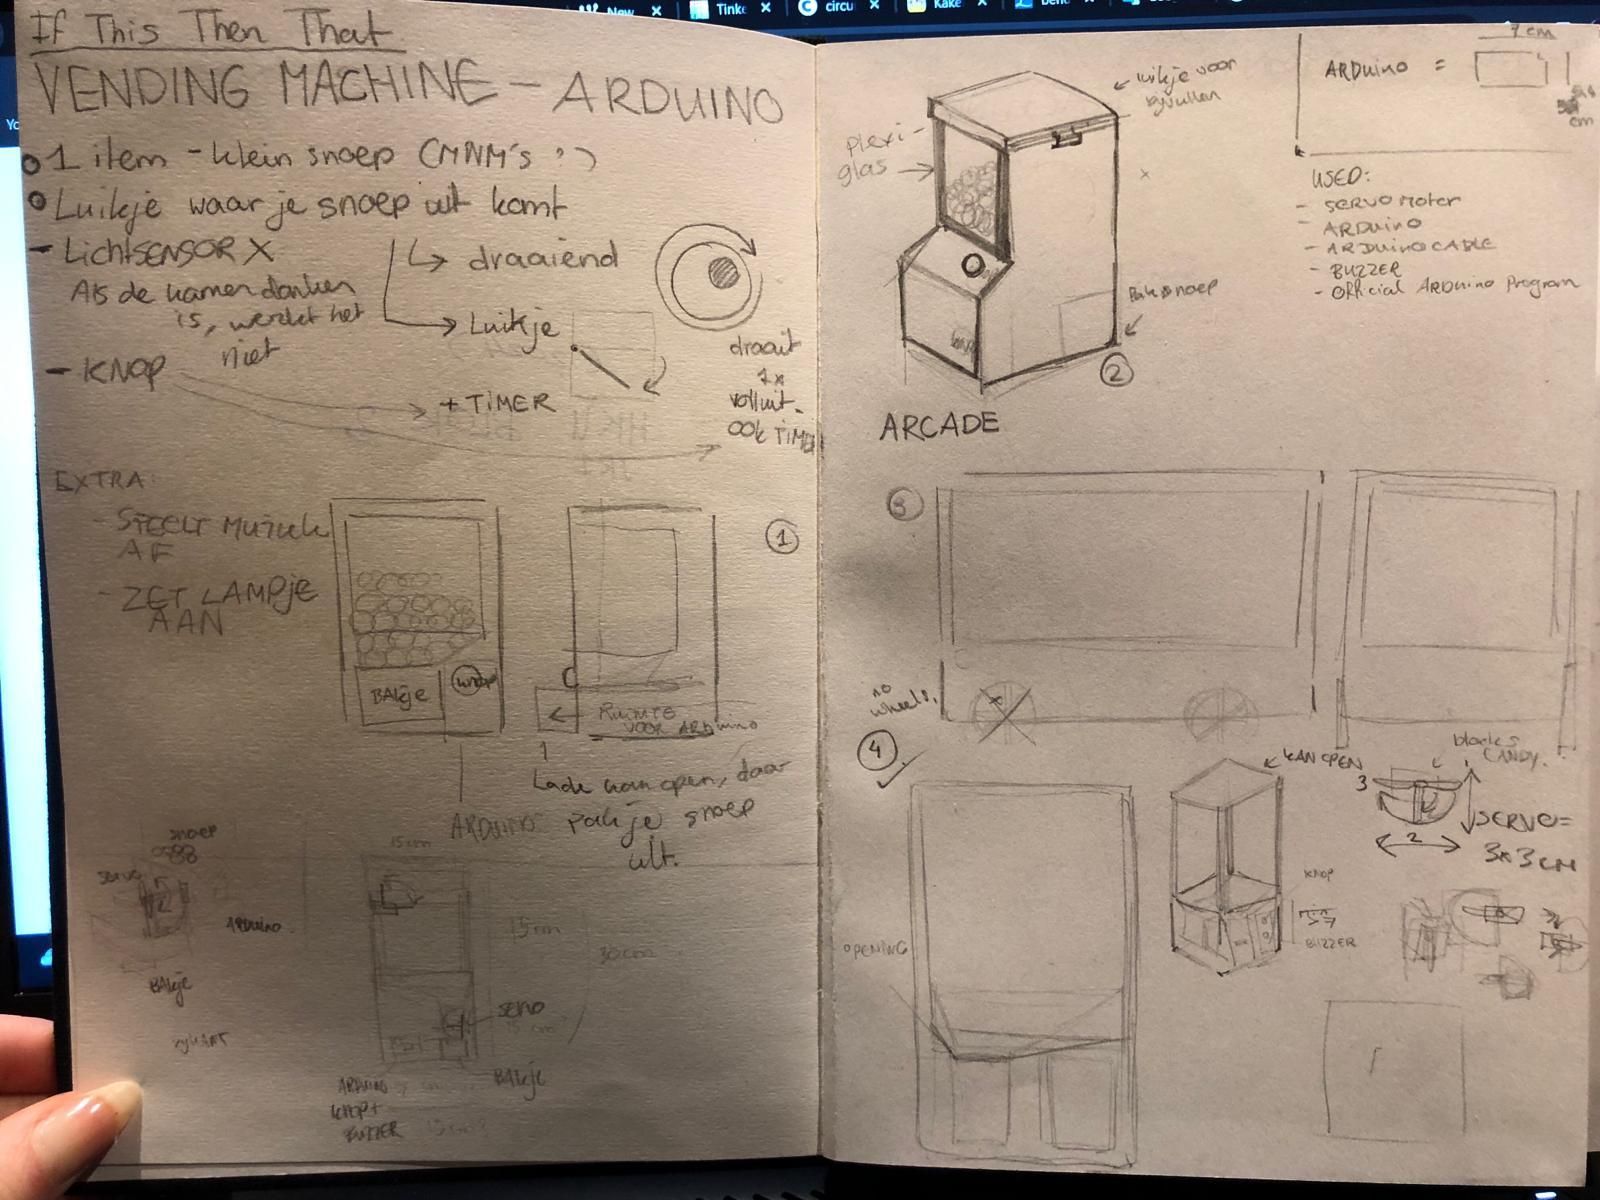 New
Tinke
circu
Kake
If This Then That
VENDING MACHINE - ARDUINO
1 item - klein snoep (MNM's :)
Luikje waar je snoep uit komt
- LichtSENSOR X
Als de kamer donker
is, werkt het
niet
- KNOP
draaiend
Luikje
+ TIMER
draait
1x
volluit.
ook TIMER
EXTRA:
- STEELT MUZIEK
AF
- ZET LAMPje
AAN
1
BAkje
knop
Ruimte
voor ARDuino
Lade kan open, daar
pak je snoep
uit.
ARDUINO
15cm
snoep
servo
ARDUINO
BAkje
zijkANT
15cm
30cm
servo
15 cm
BAkje
ARDUINO
knop+
BUZZER
15cm
Luikje voor
bijvullen
plexi-
glas
Bak snoep
2
ARCADE
ARDuino =
7 cm
cm
USED:
- SERVO Motor
- ARDUINO
- ARDUINO CABLE
- BUZZER
- Official ARDuino Program
3
no
wheels.
4
OPENING
KAN OPEN
KNOP
BUZZER
blocks
CANDY.
3
2
SERVO=
3x3 cm